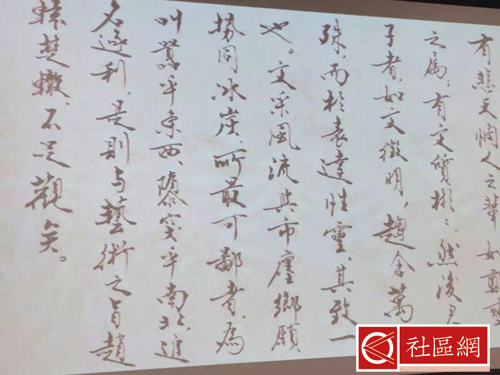 有悲天憫人之輩
之屬；有文質彬彬，然後君
子者，如文徵明，趨舍萬
殊，而於表達性靈，其致一
也。文采風流與市廛鄉願
勢同冰炭，所最可鄙者，為
叫囂乎東西，隳突乎南北，追
名逐利，是則与藝術之旨趙
轅楚轍，不足觀矣。
社區網